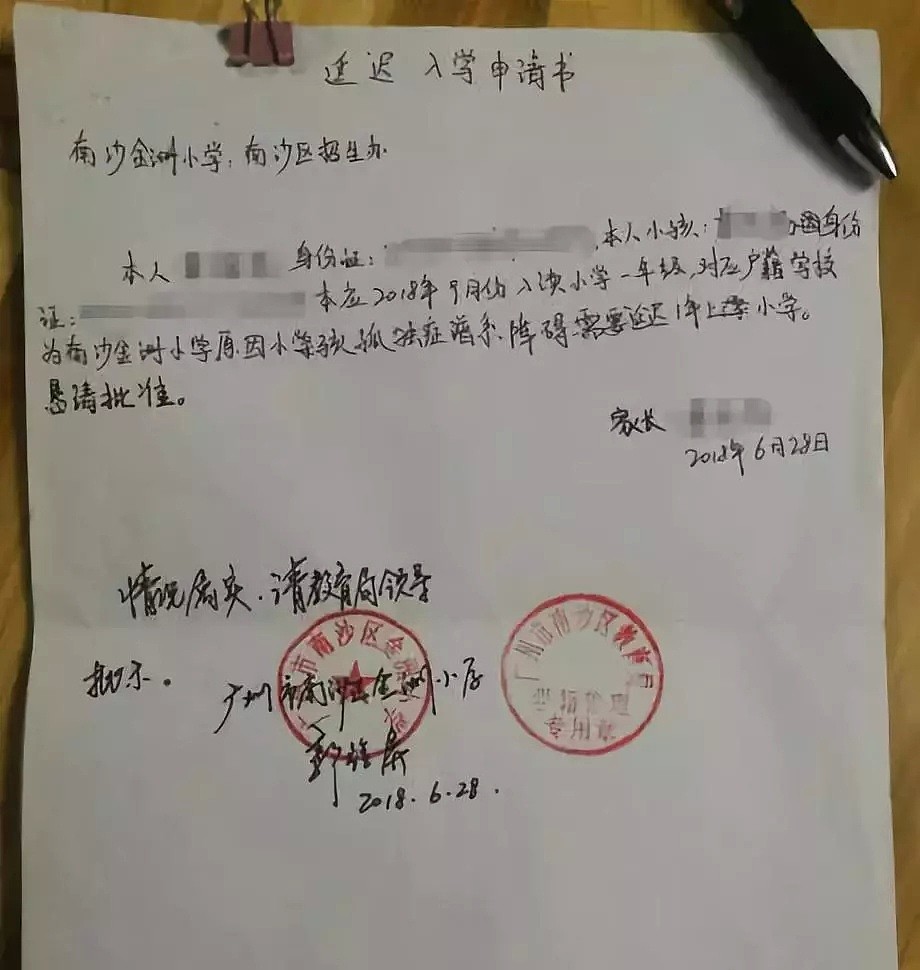 延迟入学申请书
南沙金洲小学,南沙区招生办
本人 身份证: 本人小孩: 身份
证: 本应2018年9月份入读小学一年级,对应户籍学校
为南沙金洲小学原因小孩孤独症谱系障碍需要延迟1年上学小学。
恳请批准。
家长
2018年6月28日
情况属实,请教育局领导
批示。
广州市南沙区金洲小学
2018.6.28.
市南沙区金洲
广州市南沙区教育局
学籍管理
专用章